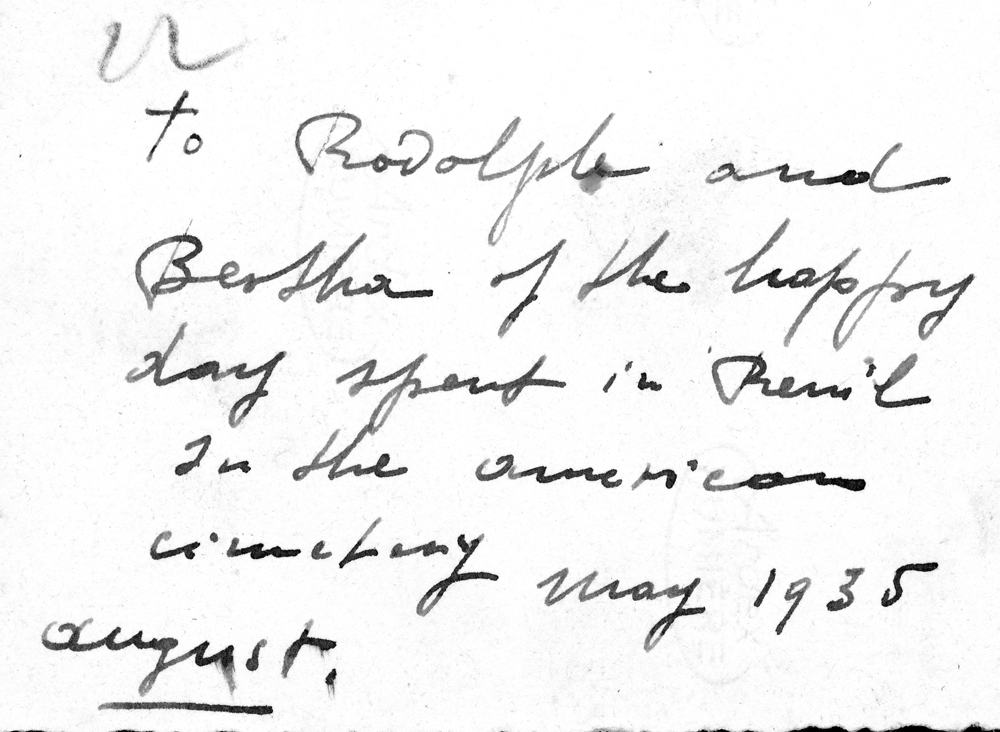 To Rodolphe and
Bertha of the happy
day spent in
In the american
cimetery May 1935
august.